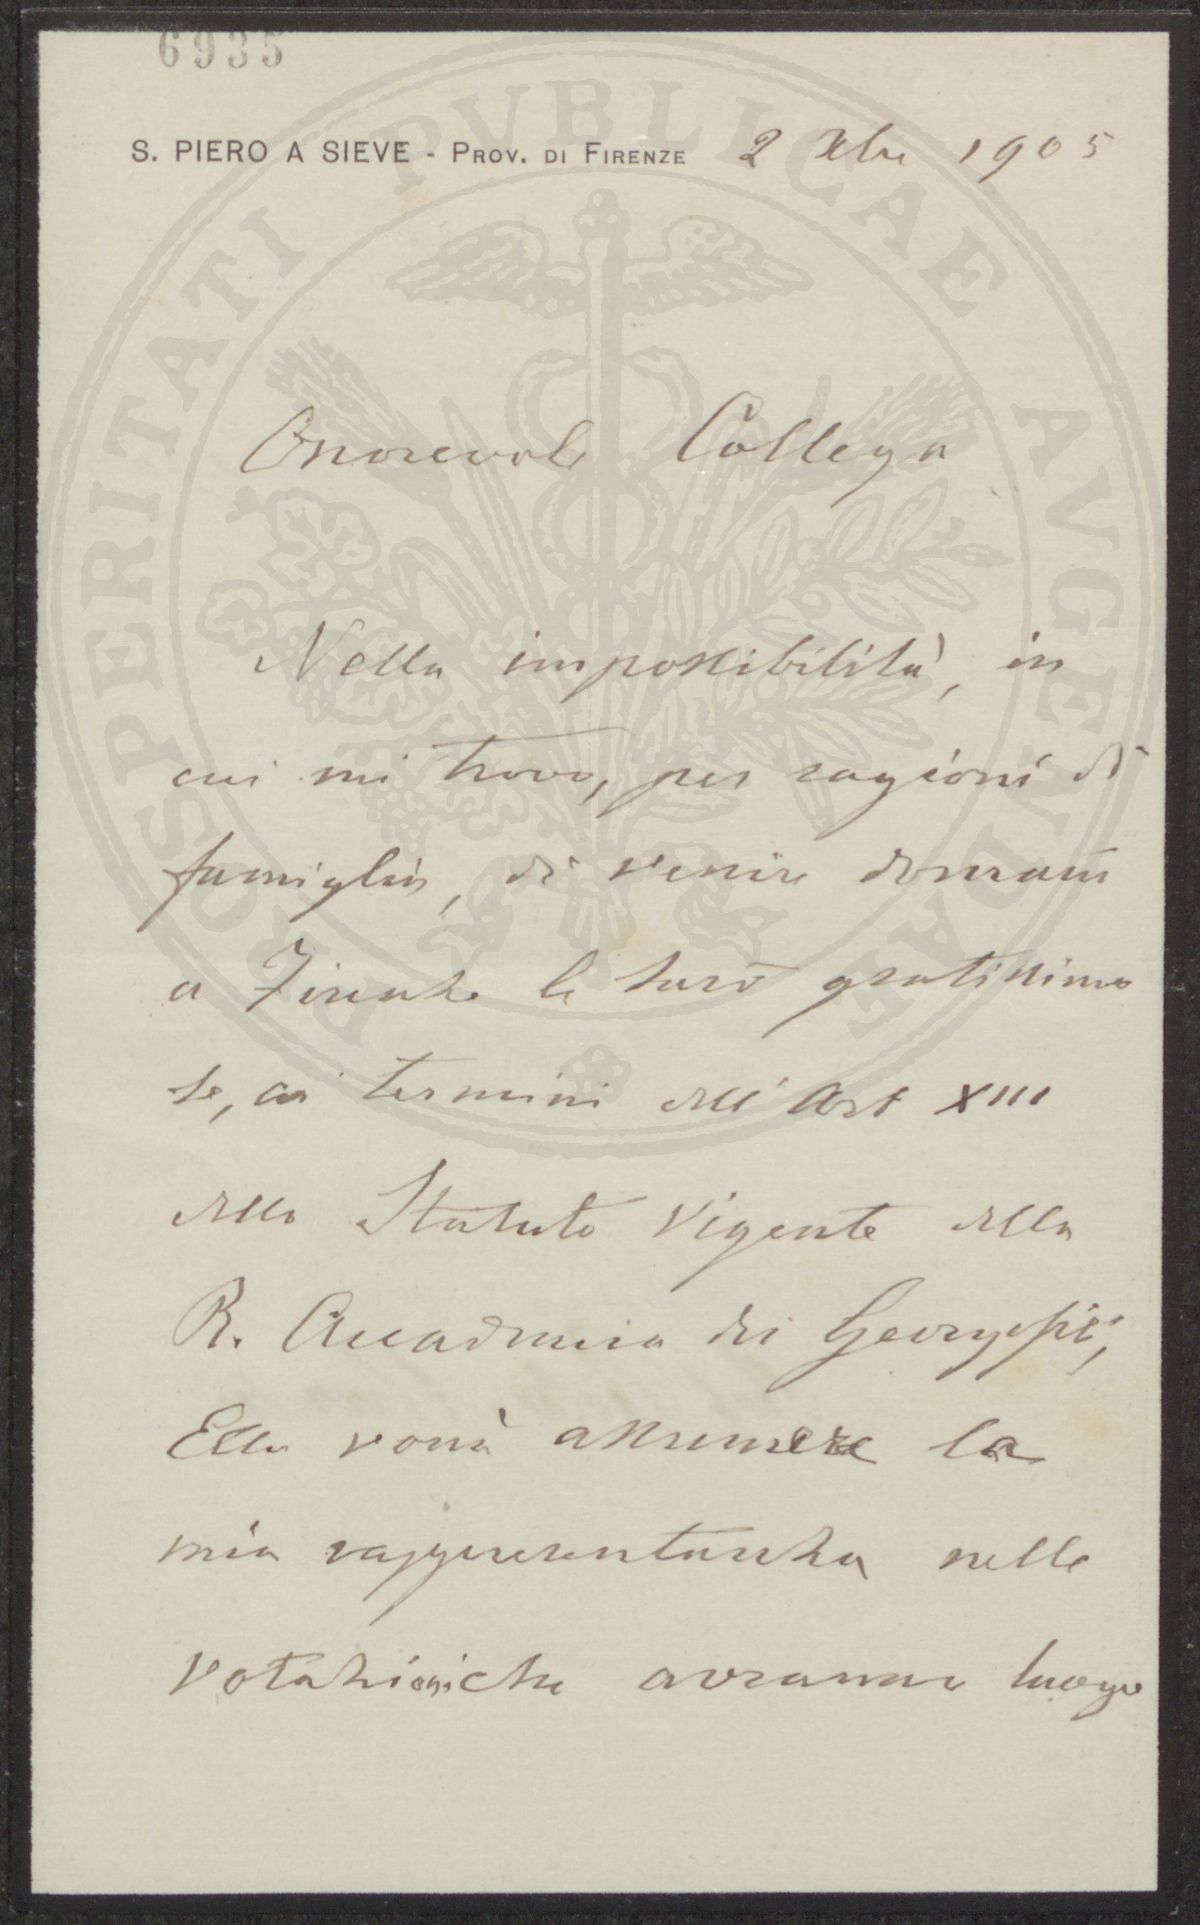 6935
S. PIERO A SIEVE - PROV. DI FIRENZE 2 Xbre 1905
PROSPERITATI PVBLICAE AVGENDAE
Onorevole Collega
Nella impossibilità, in
cui mi trovo, per ragioni di
famiglia, di venire domani
a Firenze le sarò gratissimo
se, ai termini dell'Art XIII
dello Statuto vigente della
R. Accademia dei Georgofili,
Ella vorrà assumere la
mia rappresentanza nelle
votazioni che avranno luogo